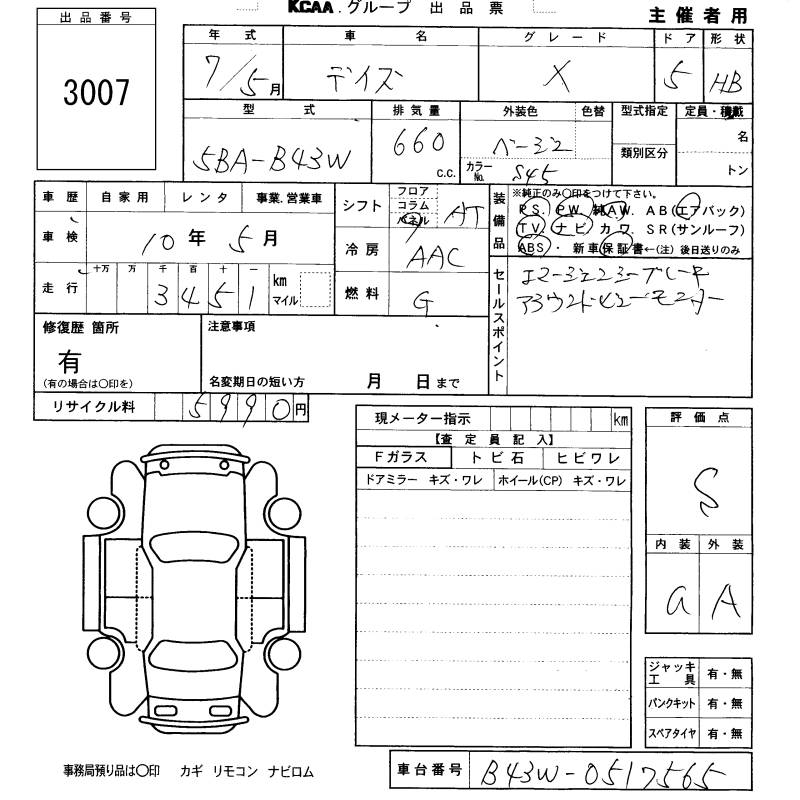 KCAA.グループ 出品票
主催者用
出品番号
3007
年式 車名 グレード ドア 形状
7/5月 デイズ X 5 HB
型式 排気量 外装色 色替 型式指定 定員・積載
5BA-B43W 660 c.c. ベージュ 類別区分 名
カラーNo. S45 トン
車歴 自家用 レンタ 事業.営業車
車検 10年 5月
走行 十万 万 千 百 十 一 km マイル
3451
シフト フロア コラム パネル AT
冷房 AAC
燃料 G
装備品 ※純正のみ〇印をつけて下さい。
PS. PW. 純AW. AB(エアバック)
TV ナビ カワ. SR(サンルーフ)
ABS・ 新車保証書←(注) 後日送りのみ
セールスポイント
エマージェンシーブレーキ
アラウンドビューモニター
修復歴 箇所
有
(有の場合は〇印を)
注意事項
名変期日の短い方 月 日まで
リサイクル料 5990円
現メーター指示 km
【査定員記入】
Fガラス トビ石 ヒビワレ
ドアミラー キズ・ワレ ホイール(CP) キズ・ワレ
評価点
S
内装 外装
a A
ジャッキ工具 有・無
パンクキット 有・無
スペアタイヤ 有・無
事務局預り品は〇印 カギ リモコン ナビロム
車台番号 B43W-0517565